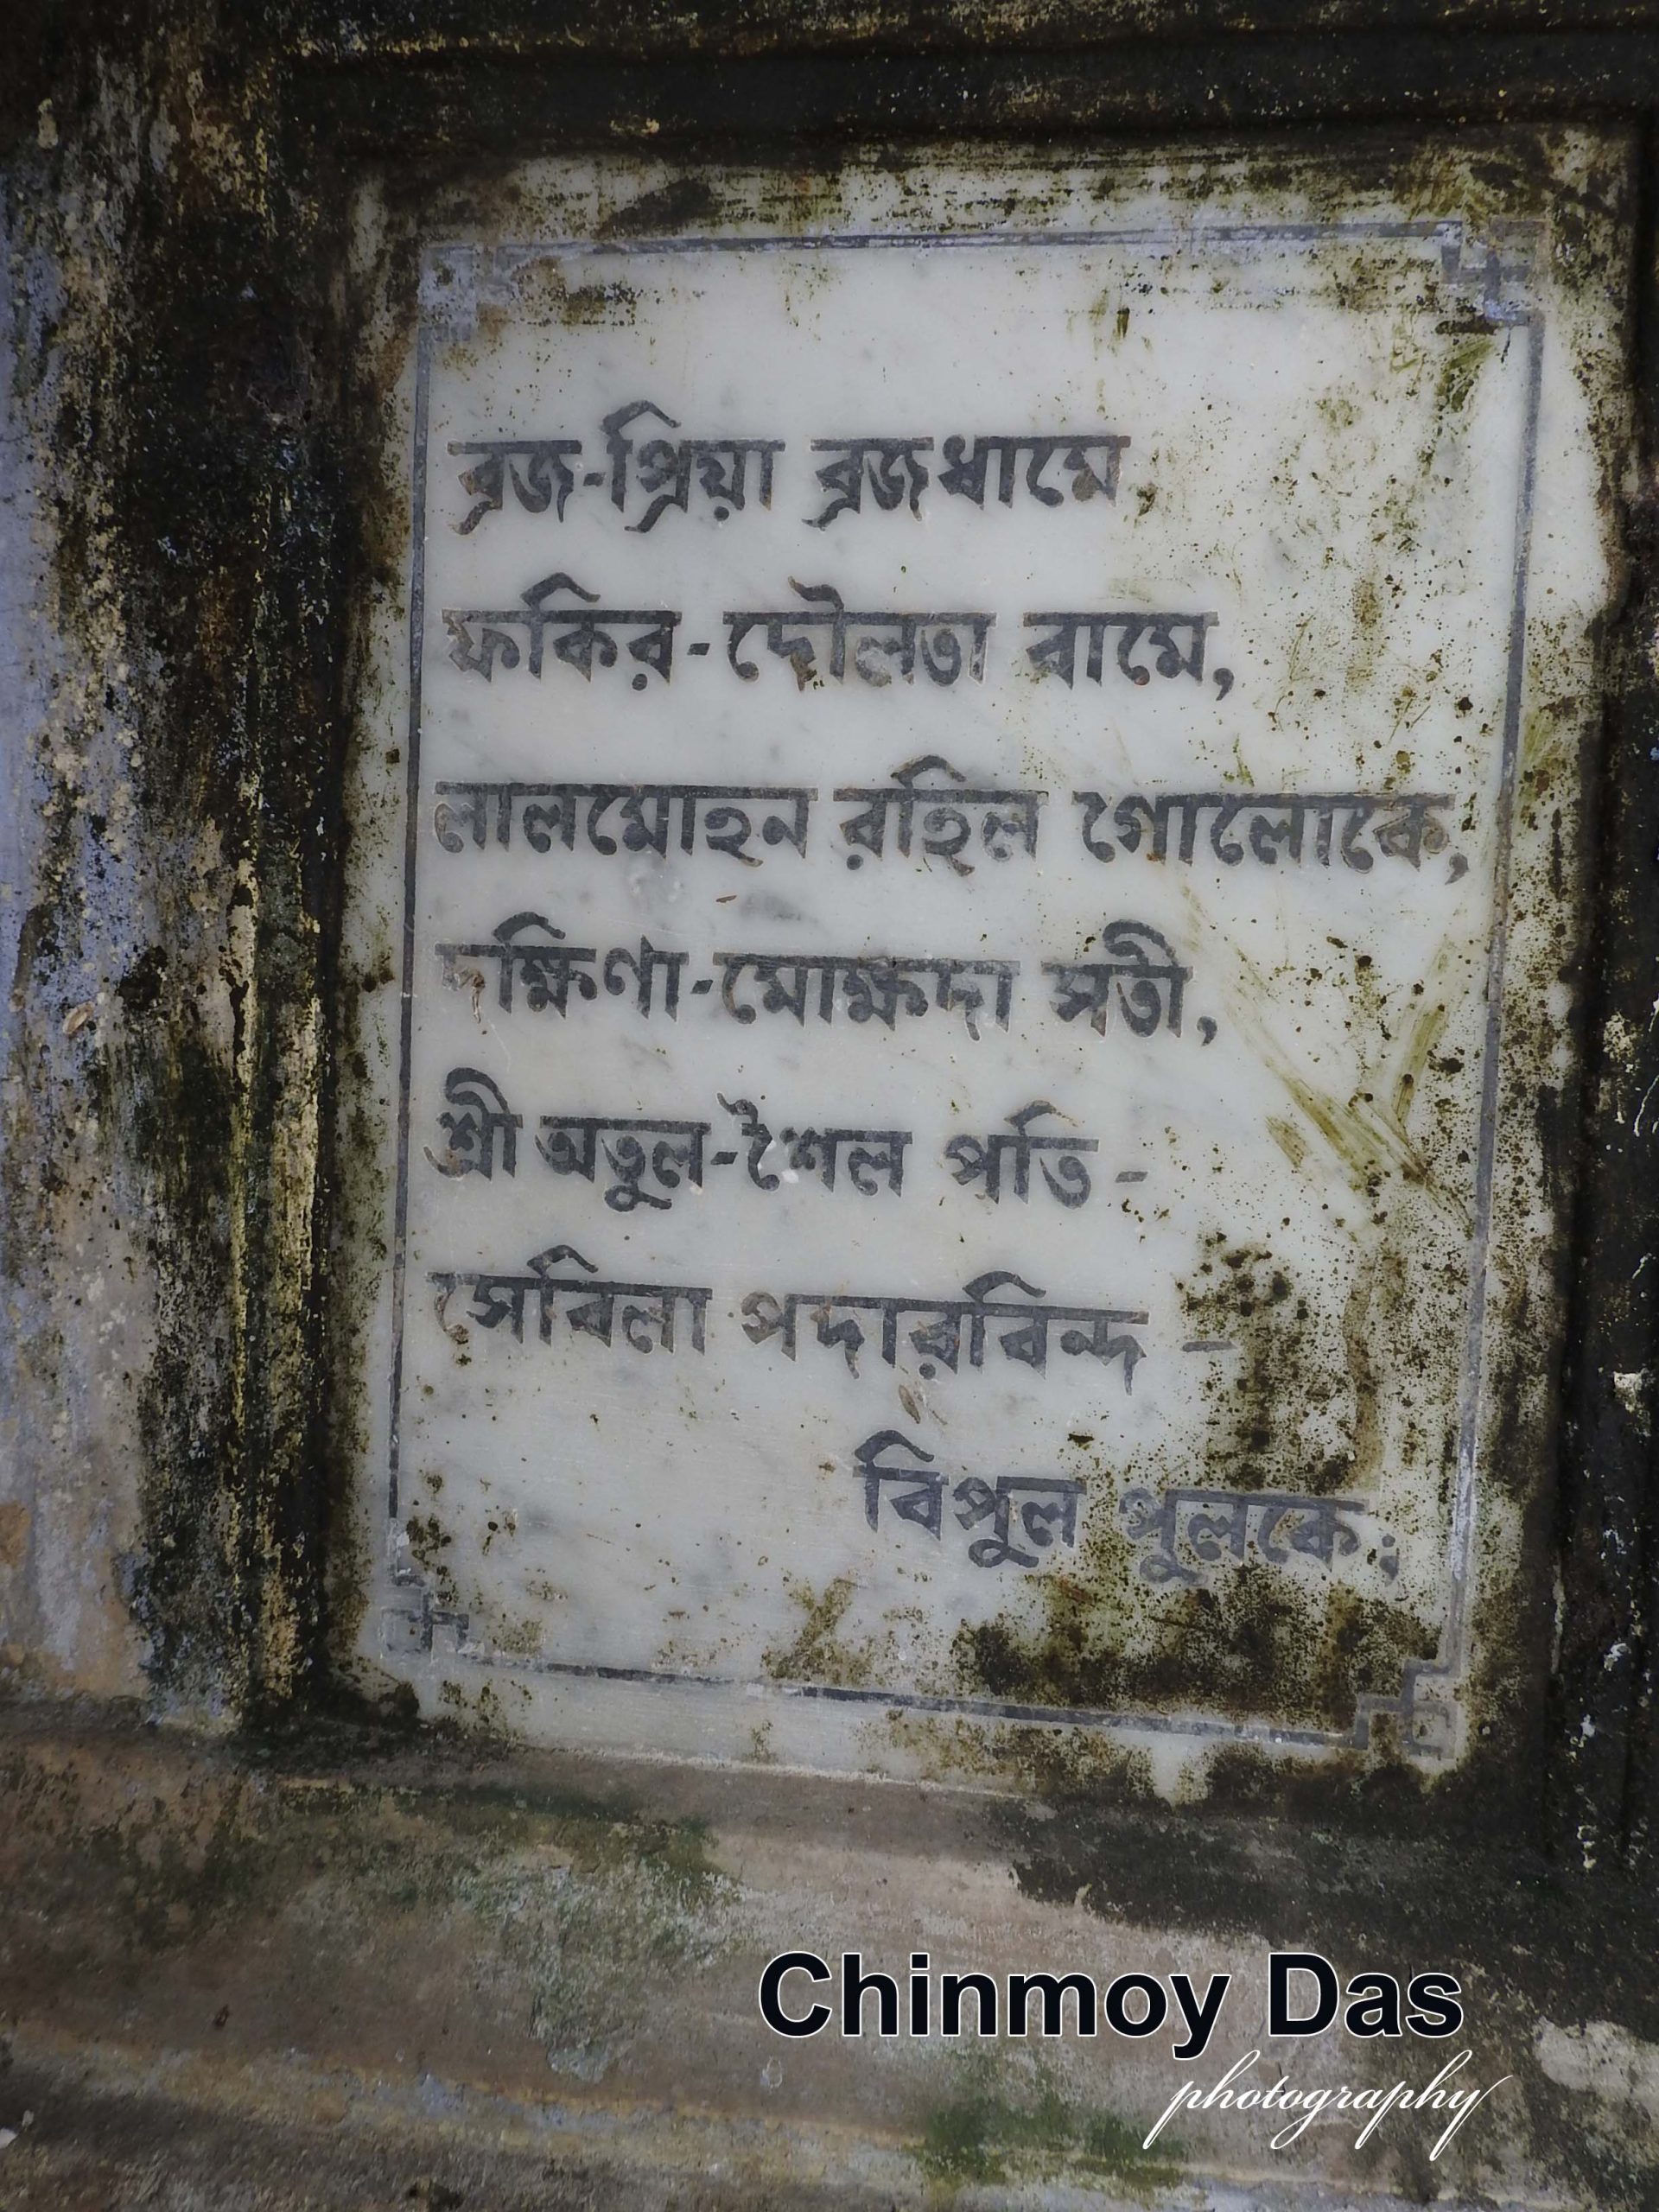 ব্রজ-প্রিয়া ব্রজধামে,
ফকির-দৌলতা বামে,
লালমোহন রহিল গোলোকে,
দক্ষিণা-মোক্ষদা সতী,
শ্রী অতুল-শৈল পতি-
সেবিলা পদারবিন্দ -
বিপুল পুলকে;
Chinmoy Das
photography